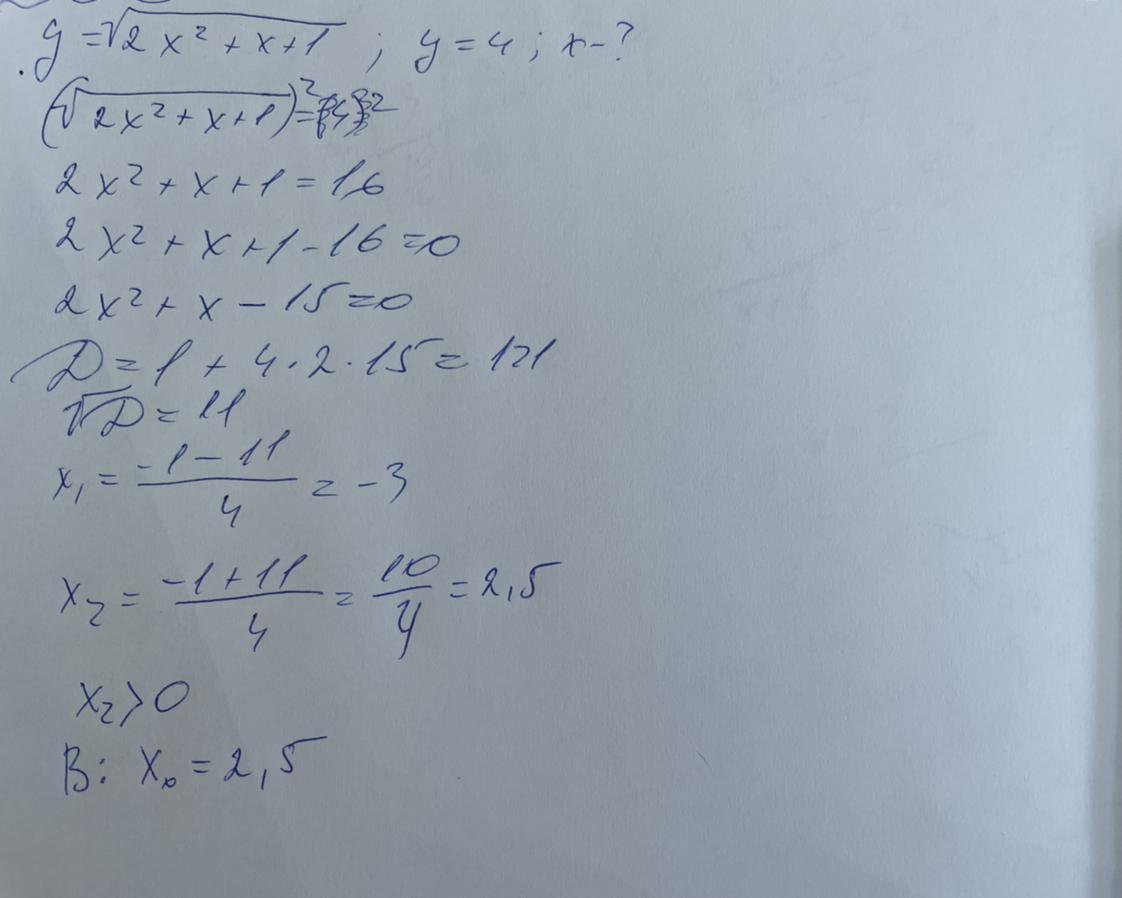 y = √(2x² + x + 1) ; y = 4 ; x - ?
(√(2x² + x + 1))² = (4)²
2x² + x + 1 = 16
2x² + x + 1 - 16 = 0
2x² + x - 15 = 0
D = 1 + 4 · 2 · 15 = 121
√D = 11
x₁ = (-1 - 11)/4 = -3
x₂ = (-1 + 11)/4 = 10/4 = 2,5
x₂ > 0
В: x₀ = 2,5